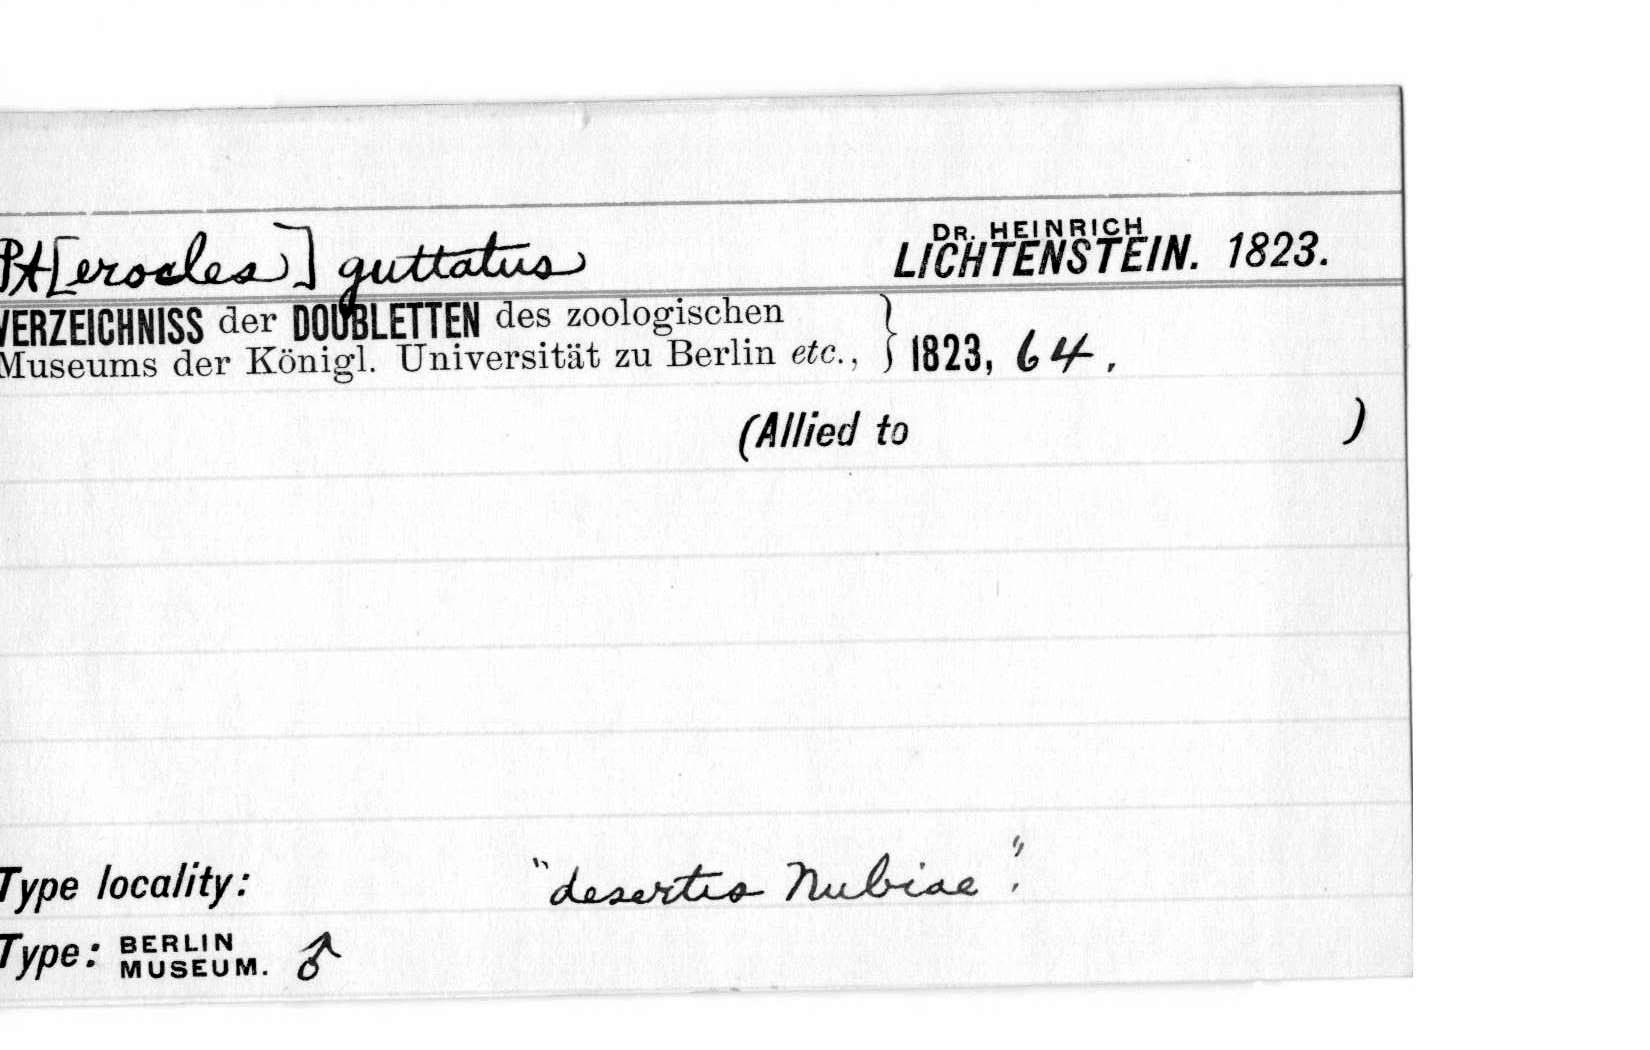 Pt[erocles] guttatus DR. HEINRICH LICHTENSTEIN. 1823.
VERZEICHNISS der DOUBLETTEN des zoologischen
Museums der Königl. Universität zu Berlin etc., } 1823, 64.
(Allied to )
Type locality: "desertis Nubiae".
Type: BERLIN MUSEUM. ♂